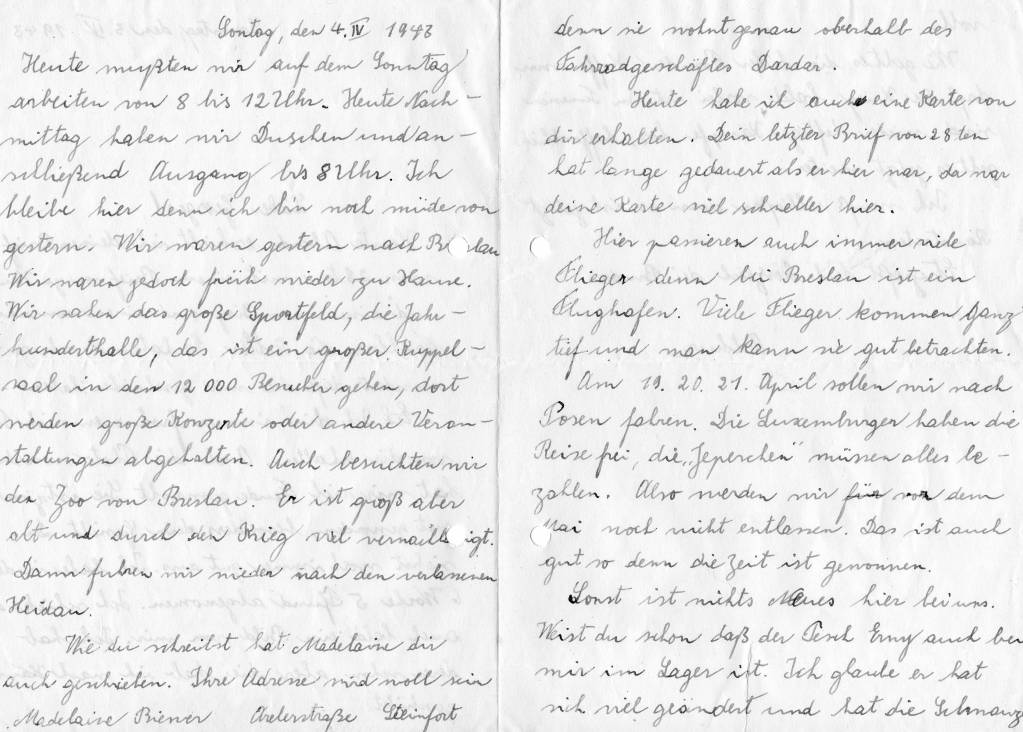 Sontag, den 4. IV 1943
Heute mußten wir auf dem Sonntag
arbeiten von 8 bis 12 Uhr. Heute Nach-
mittag haben wir Duschen und an-
schließend Ausgang bis 8 Uhr. Ich
bleibe hier denn ich bin noch müde von
gestern. Wir waren gestern nach Breslau
Wir waren jedoch früh wieder zu Hause.
Wir sahen das große Sportfeld, die Jahr-
hunderthalle, das ist ein großer Kuppel-
saal in den 12 000 Besucher gehen, dort
werden große Konzerte oder andere Veran-
staltungen abgehalten. Auch besuchten wir
den Zoo von Breslau. Er ist groß aber
alt und durch den Krieg viel
Dann fuhren wir wieder nach den verlassenen
Heidau.
Wie du schreibst hat Madelaise dir
auch geschrieben. Ihre Adresse wird woll sein
Madelaise Biewer Arlerstraße Steinfort
denn sie wohnt genau oberhalb des
Fahrradgeschäftes Dardar.
Heute habe ich auch eine Karte von
dir erhalten. Dein letzter Brief von 28 ten
hat lange gedauert als er hier war, da war
deine Karte viel schneller hier.
Hier passieren auch immer viele
Flieger denn bei Breslau ist ein
Flughafen. Viele Flieger kommen ganz
tief und man kann sie gut betrachten.
Am 19. 20. 21. April sollen wir nach
Posen fahren. Die Luxemburger haben die
Reise frei, die „Jeperchen" müssen alles be-
zahlen. Also werden wir für vor dem
Mai noch nicht entlassen. Das ist auch
gut so denn die Zeit ist gewonnen.
Sonst ist nichts Neues hier bei uns.
Weist du schon daß der Pesch Erny auch bei
mir im Lager ist. Ich glaube er hat
sich viel geändert und hat die Schnauze